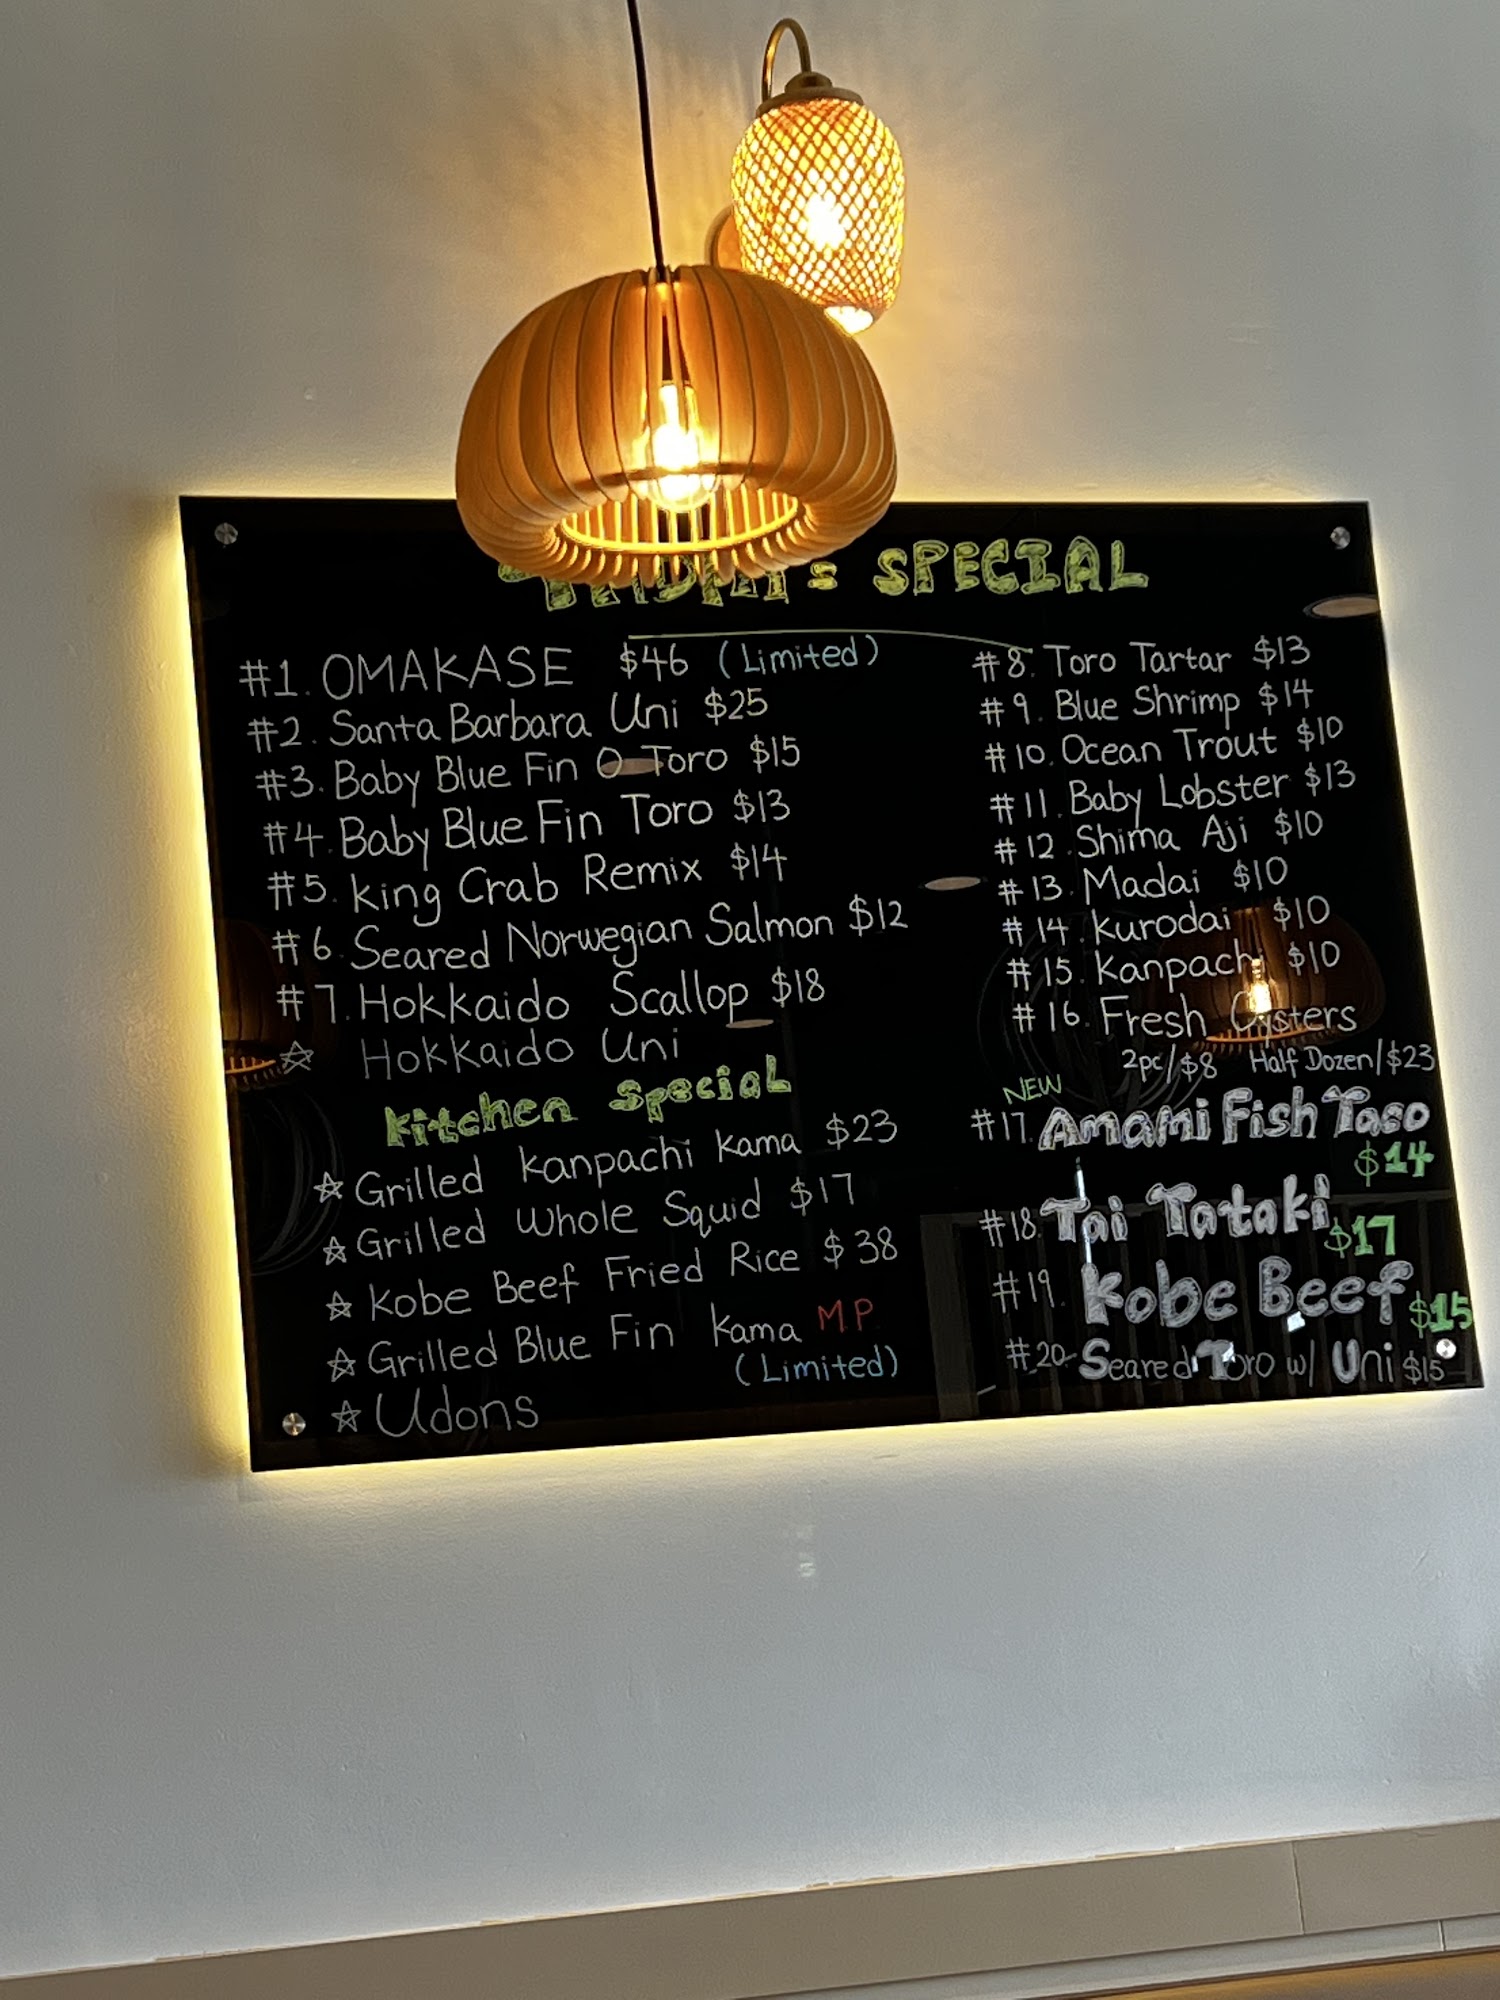 SPECIAL
#1. OMAKASE $46 (Limited)
#2. Santa Barbara Uni $25
#3. Baby Blue Fin O-Toro $15
#4. Baby Blue Fin Toro $13
#5. King Crab Remix $14
#6. Seared Norwegian Salmon $12
#7. Hokkaido Scallop $18
☆ Hokkaido Uni
Kitchen Special
☆ Grilled Kanpachi Kama $23
☆ Grilled Whole Squid $17
☆ Kobe Beef Fried Rice $38
☆ Grilled Blue Fin Kama M.P.
(Limited)
☆ Udons
#8. Toro Tartar $13
#9. Blue Shrimp $14
#10. Ocean Trout $10
#11. Baby Lobster $13
#12. Shima Aji $10
#13. Madai $10
#14. Kurodai $10
#15. Kanpachi $10
#16. Fresh Oysters
2pc/$8 Half Dozen/$23
NEW
#17. Amami Fish Taco
$14
#18. Tai Tataki $17
#19. Kobe Beef $15
#20. Seared Toro w/ Uni $15